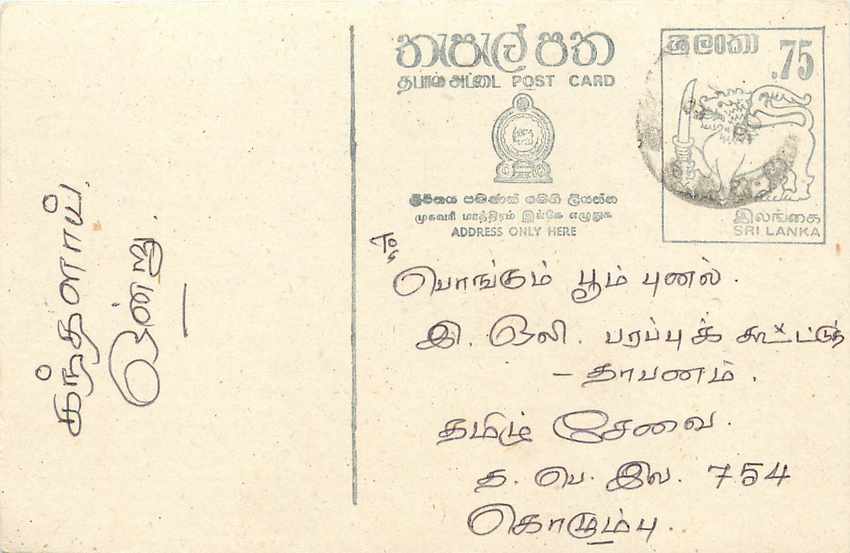 තැපැල් පත
தபால் அட்டை POST CARD
ලිපිනය පමණක් මෙහි ලියන්න
முகவரி மாத்திரம் இங்கே எழுதுக
ADDRESS ONLY HERE
ශ්‍රී ලංකා
.75
இலங்கை
SRI LANKA
To,
பொங்கும் பூம் புனல்.
இ. ஒலி. பரப்புக் கூட்டுத்
- தாபனம்.
தமிழ் சேவை.
த. பெ. இல. 754
கொழும்பு.
கந்தளாய்,